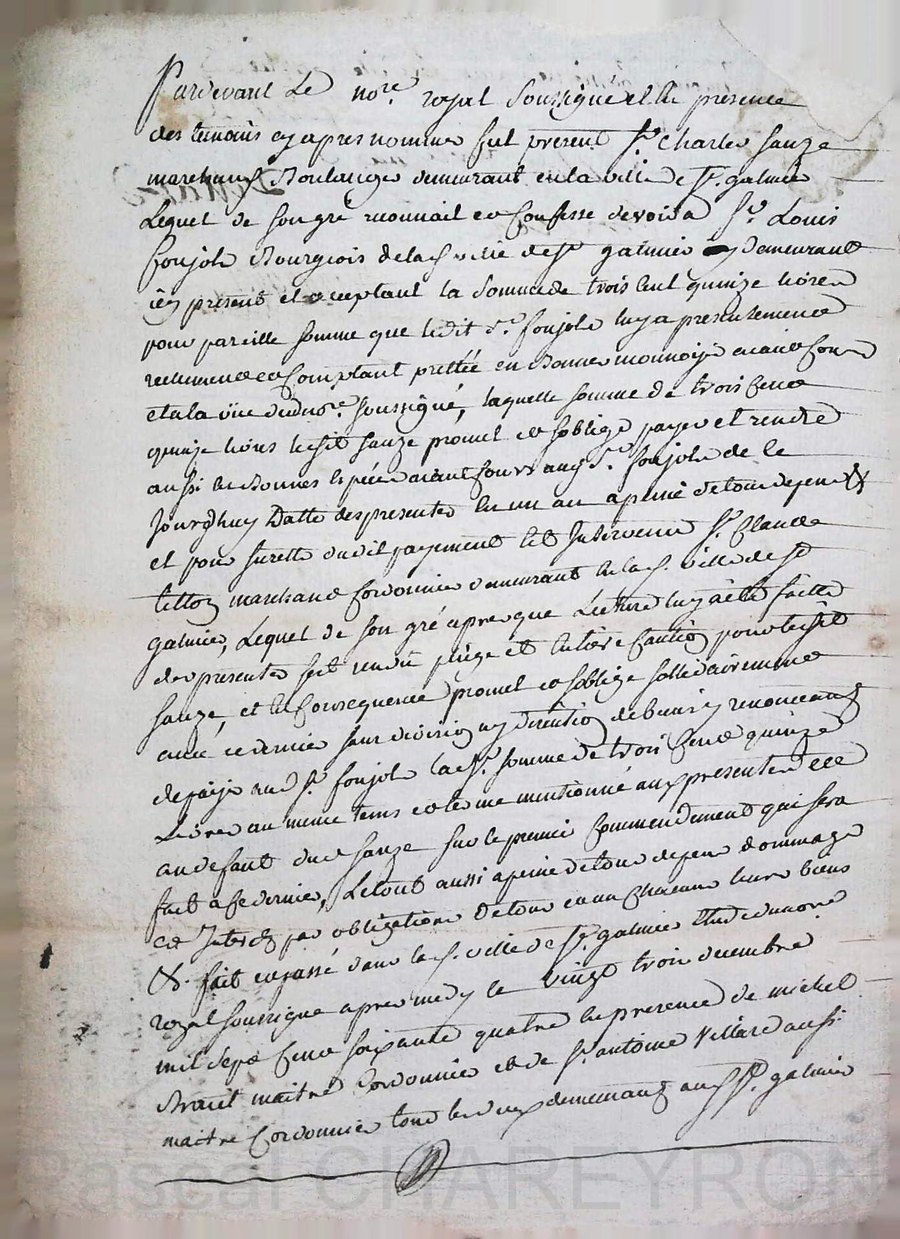 Pardevant Le nore. royal Soussigné et En presence
des temoins cy apres nommés fut present Sr. Charles Sauze
marchand Boulanger demeurant en la ville de St. galmier
Lequel de son gré reconnait et Confesse devoir a Sr. Louis
Foujols Bourgeois de lad. ville de St galmier y demeurant
icy present et acceptant la Somme de trois Cent quinze livres
pour pareille somme que ledit Sr. foujols luy a presentement
reellement et Comptant prettée en Bonne monnoye aiant Cours
et a la vüe dud nore. soussigné, laquelle somme de trois Cent
quinze livres ledit Sauze promet et soblige payer et rendre
aussi En Bonnes Especes aiant Cours aud Sr. foujols de ce
Jourdhuy Datte des presentes En un an a peine de tous depens &
et pour surette dudit payement Est Intervenu Sr. Claude
marchand Cordonnier demeurant En lad. ville de St
galmier, Lequel de son gré apres que Lecture luy a été faitte
des presentes sest rendu plege et Entiere Caution pour ledit
Sauze, et En Consequence promet et soblige sollidairement
avec ce dernier sans division ny direction de biens y renonceant
de payer aud Sr. foujols lad. somme de trois Cent quinze
Livres au meme tems et terme mentionné aux presentes et ce
au defaut dud Sauze sur le premier Commendement qui sera
fait a Ce dernier, Le tout aussi a peine de tous depens dommage
et Interets par obligation de tous et un chacun leurs biens
& fait et passé dans lad. ville de St. galmier Etude du nore.
royal soussigné apres medy le vingt trois decembre
mil sept Cent soixante quatre En presence de michel
maitre Cordonnier et de Sr. antoine Villard aussi
maitre Cordonnier tous les deux demeurants aud St. galmier
Pascal CHAREYRON